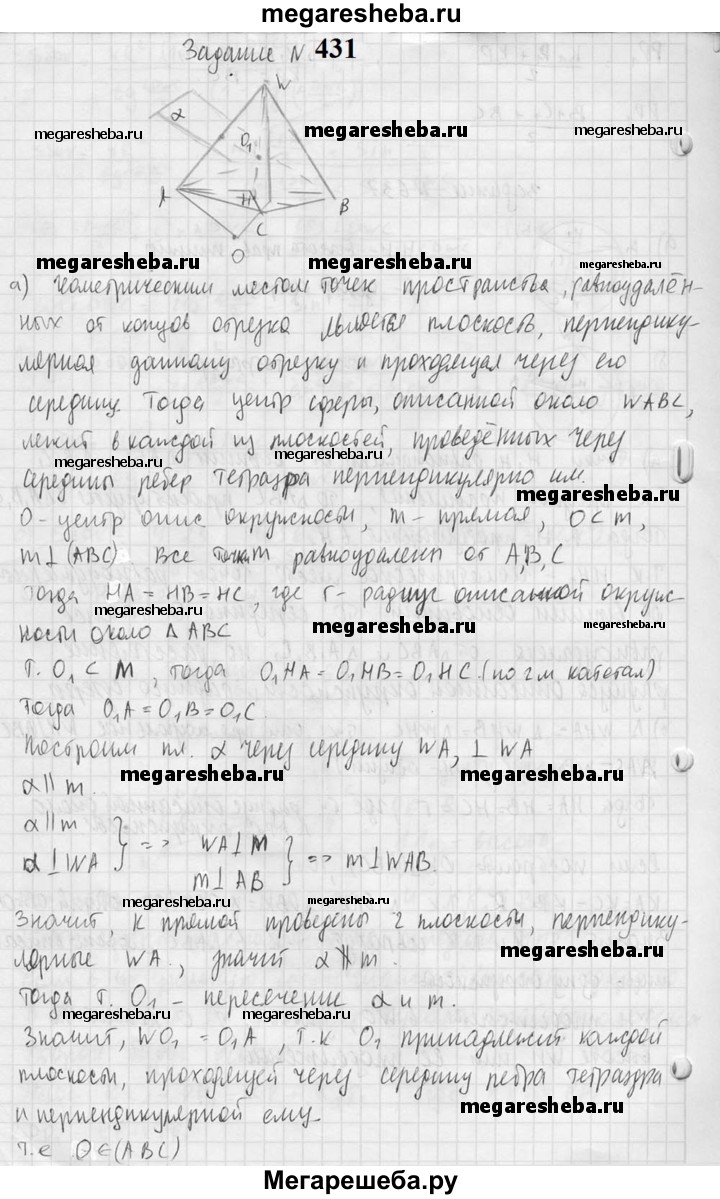 megaresheba.ru
Задание N. 431
W
α
megaresheba.ru
megaresheba.ru
O₁
megaresheba.ru
A
H
B
C
O
megaresheba.ru
megaresheba.ru
а) Геометрическим местом точек пространства, равноудалён-
ных от концов отрезка является плоскость, перпендику-
лярная данному отрезку и проходящая через его
середину. Тогда центр сферы, описанной около WABC,
лежит в каждой из плоскостей, проведённых через
megaresheba.ru
середины ребер тетраэдра перпендикулярно им.
megaresheba.ru
O - центр опис окружности, m - прямая, O ⊂ m,
m ⊥ (ABC) Все точки m равноудалены от A,B,C
Тогда HA = HB = HC, где r - радиус описанной окруж-
megaresheba.ru
ности около Δ ABC
megaresheba.ru
Т. O₁ ⊂ M, тогда O₁HA = O₁HB = O₁HC (по 2м катетам)
Тогда O₁A = O₁B = O₁C.
Построим пл. α через середину WA, ⊥ WA
megaresheba.ru
megaresheba.ru
α || m.
α || m
α ⊥ WA } => WA ⊥ M
m ⊥ AB } => m ⊥ WAB.
megaresheba.ru
Значит, к прямой проведены 2 плоскости, перпендику-
megaresheba.ru
лярные WA., значит α ∦ m.
Тогда т. O₁ - пересечение α и m.
megaresheba.ru
megaresheba.ru
Значит, WO₁ = O₁A, т.к O₁ принадлежит каждой
плоскости, проходящей через середину ребра тетраэдра
и перпендикулярной ему.
megaresheba.ru
т.е O ∈ (ABC)
Мегарешеба.ру